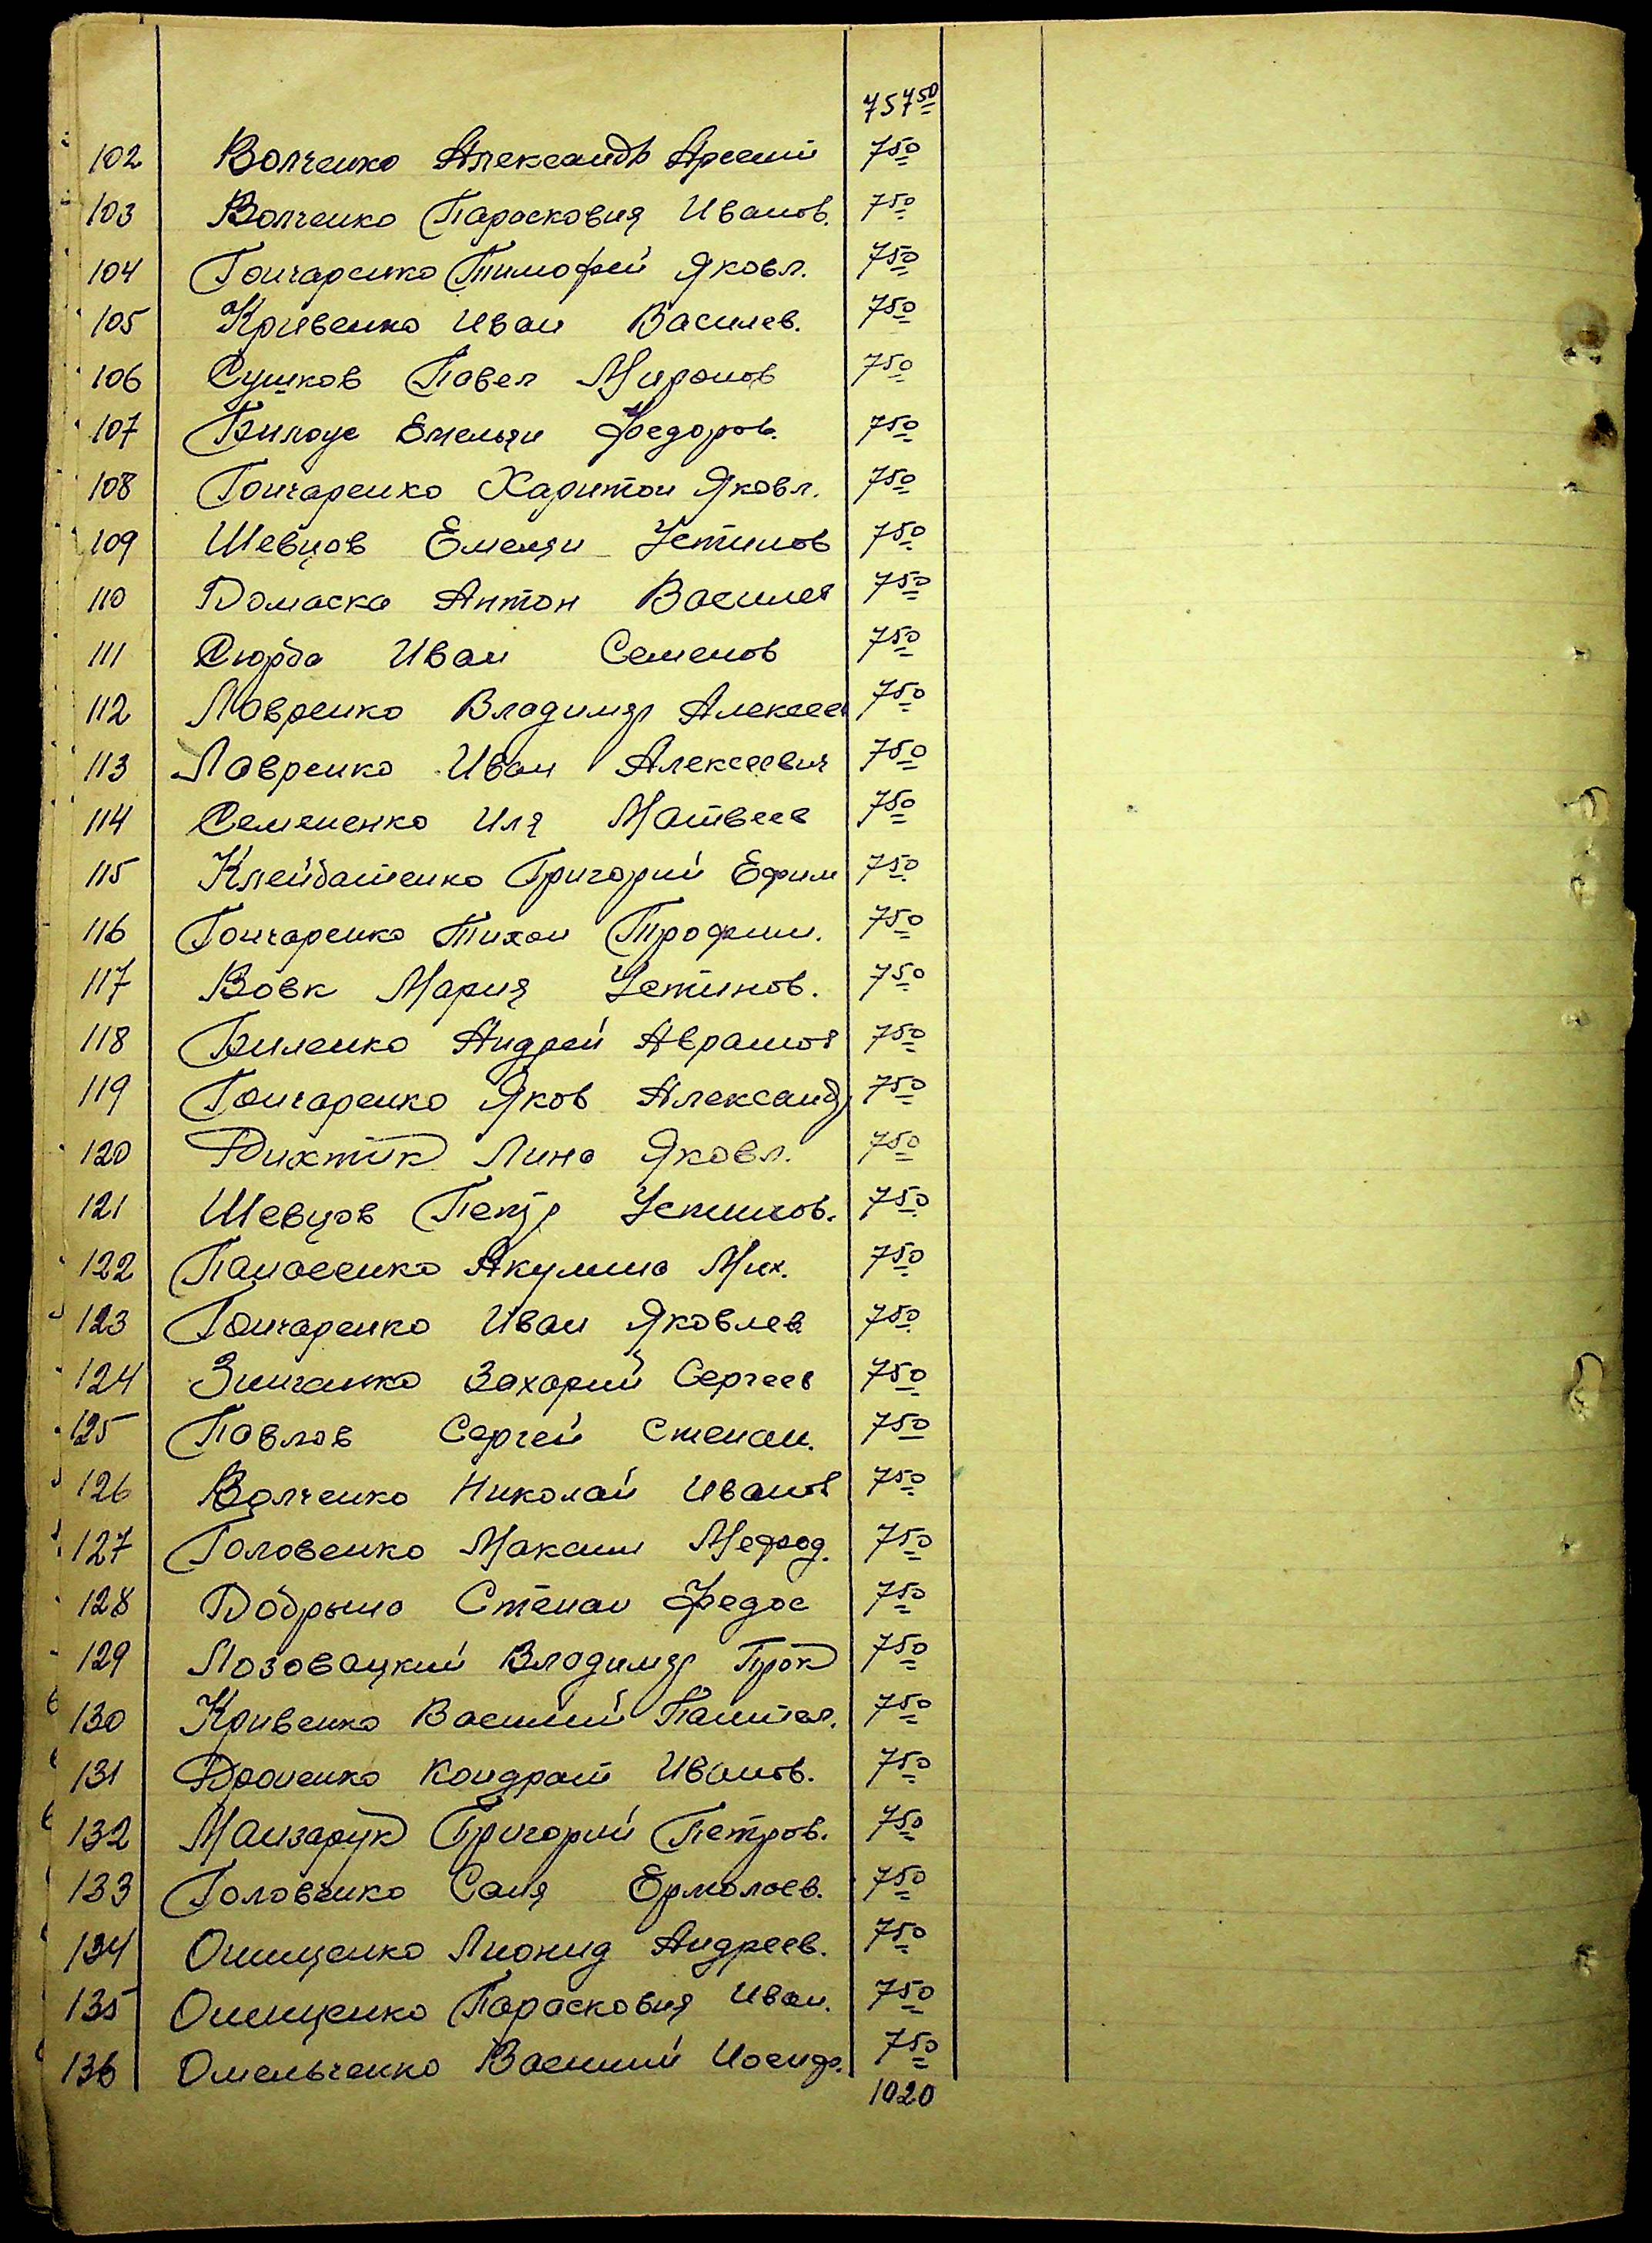 757 50
102 Волченко Александр Арсений 7 50
103 Волченко Парасковия Иванов. 7 50
104 Гончаренко Тимофей Яковл. 7 50
105 Кривенко Иван Василев. 7 50
106 Сушков Павел Миронов 7 50
107 Билоус Емельян Федоров. 7 50
108 Гончаренко Харитон Яковл. 7 50
109 Шевцов Емелян Устинов 7 50
110 Домаска Антон Василев 7 50
111 Сюрба Иван Семенов 7 50
112 Лавренко Владимир Алексеев 7 50
113 Лавренко Иван Алексеевич 7 50
114 Семененко Иля Матвеев 7 50
115 Клейбатенко Григорий Ефим 7 50
116 Гончаренко Тихон Трофим. 7 50
117 Вовк Мария Устинов. 7 50
118 Биленко Андрей Аврамов 7 50
119 Гончаренко Яков Александ. 7 50
120 Дихтик Лина Яковл. 7 50
121 Шевцов Петр Устинов. 7 50
122 Панасенко Акулина Мих. 7 50
123 Гончаренко Иван Яковлев 7 50
124 Зинченко Захарий Сергеев 7 50
125 Павлов Сергей Степан. 7 50
126 Волченко Николай Иванов 7 50
127 Головенко Максим Мефод. 7 50
128 Добрыно Степан Федос 7 50
129 Лозовацкий Владимир Прок 7 50
130 Кривенко Василий Пантел. 7 50
131 Дроненко Кондрат Иванов. 7 50
132 Манзарук Григорий Петров. 7 50
133 Головенко Саня Ермолаев. 7 50
134 Онищенко Лионид Андреев. 7 50
135 Онищенко Парасковия Иван. 7 50
136 Омельченко Василий Иосиф. 7 50
1020